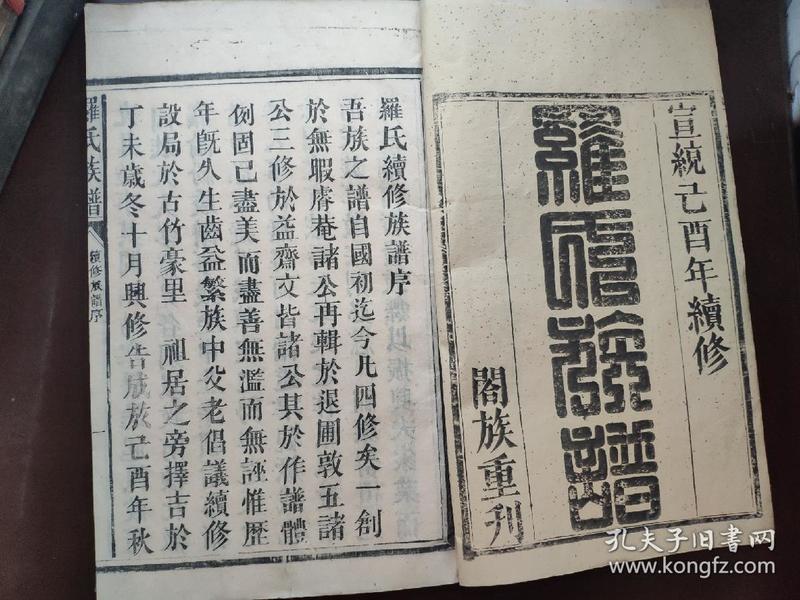 宣統己酉年續修
羅氏族譜
閤族重刊
羅氏續修族譜序
吾族之譜自國初迄今凡四修矣一創
於無暇睿菴諸公再輯於退圃敦五諸
公三修於益齋文皆諸公其於作譜體
例固已盡美而盡善無濫而無誣惟歷
年旣久生齒益繁族中父老倡議續修
設局於古竹豪里 祖居之旁擇吉於
丁未歲冬十月興修告成於己酉年秋
羅氏族譜
續修族譜序
一
孔夫子旧书网
www.kongfz.com